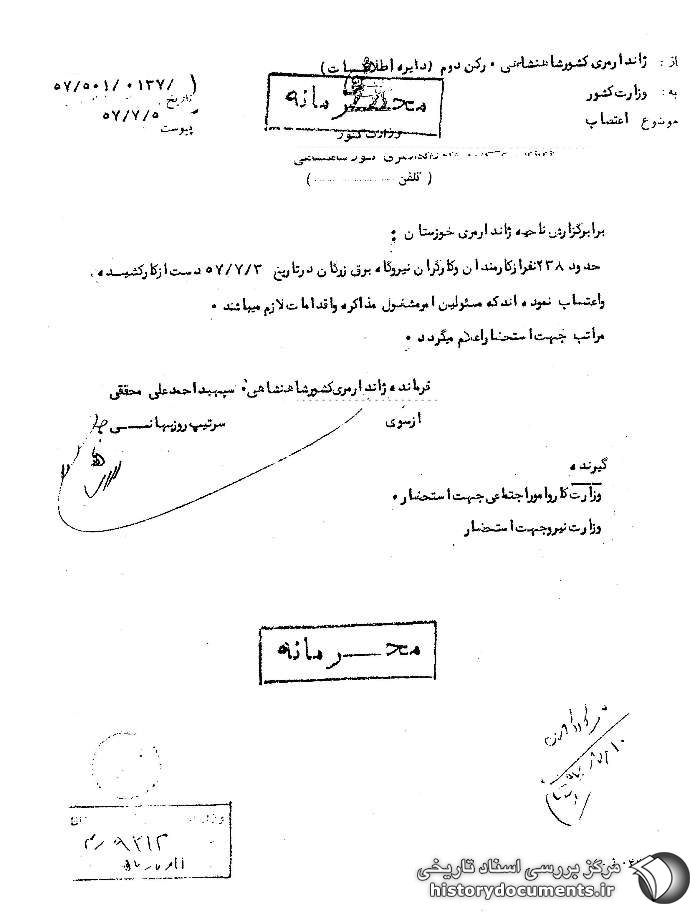 از : ژاندارمری کشور شاهنشاهی ۰ رکن دوم (دایره اطلاعات)
به : وزارت کشور
موضوع اعتصاب
۵۷/۵۰۱/۰۱۳۷/
تاریخ ۵۷/۷/۵
پیوست
محـــرمانه
وزارت کشور
ژاندارمری کشور شاهنشاهی
( تلفن ............ )
برابر گزارش ناحیه ژاندارمری خوزستان :
حدود ۲۳۸ نفر از کارمندان و کارگران نیروگاه برق زرگان در تاریخ ۵۷/۷/۳ دست از کار کشیده ،
واعتصاب نموده اند که مسئولین امر مشغول مذاکره و اقدامات لازم میباشند ۰
مراتب جهت استحضار اعلام میگردد ۰
فرمانده ژاندارمری کشور شاهنشاهی ۰ سپهبد احمدعلی محققی
از سوی سرتیپ روزبهانـــی
گیرنده
وزارت کار و امور اجتماعی جهت استحضار ۰
وزارت نیرو جهت استحضار
محـــرمانه
۹۳۱۳
مرکز بررسی اسناد تاریخی
historydocuments.ir